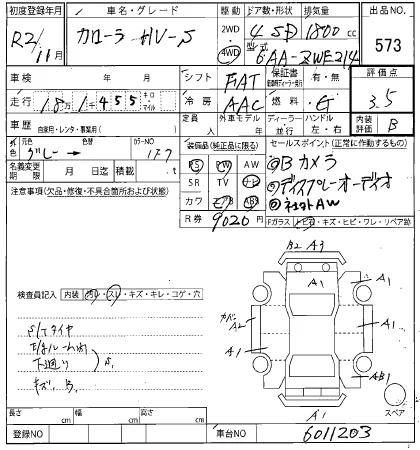 初度登録年月 車名・グレード 駆動 ドア数・形状 排気量 出品NO.
R2/11月 カローラ HV-S 2WD 4WD 4 SD 1800 cc 573
型式 6AA-ZWE214
車検 年 月 シフト FAT 保証書 有・無 評価点
走行 18万1千455 キロ・マイル 冷房 AAC 燃料 G 3.5
車歴 自家用・レンタ・事業用( ) 定員 人 外車モデル 年 ディーラー・並行 ハンドル 左・右 内装 B
外色 元色 グレー 色替 カラーNO 1F7
装備品(純正品に限る) セールスポイント(正常に作動するもの)
名義変更期限 月 日迄 積載 .t
PS PW AW ①Bカメラ
SR TV ナビ ②ディスプレーオーディオ
カワ エアB ABS
注意事項(欠品・修復・不具合箇所および状態)
R券 9020 円 Fガラス トビ石・キズ・ヒビ・ワレ・リペア跡
検査員記入 内装 ヨゴレ・スレ・キズ・キレ・コゲ・穴
S/Tタイヤ
E/gルーム内
下廻り S.
キズ、B.
B2 A3
A1
A1
A2
A1
A1
AB1
A1
スペア
長さ cm 幅 cm 高さ cm
登録NO 車台NO 6011203